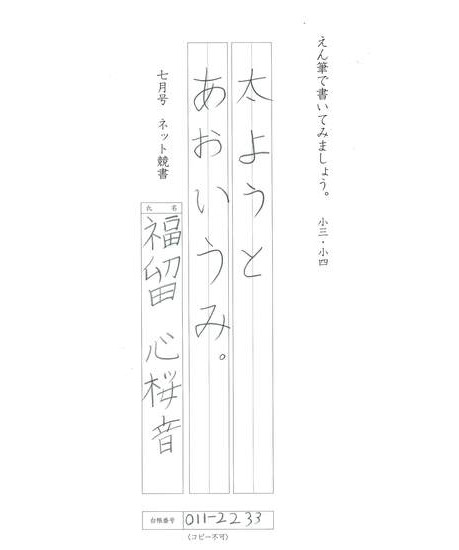 えん筆で書いてみましょう。 小三・小四
太ようと
あおいうみ。
七月号 ネット競書
氏名
福留 心桜音
台帳番号 011-2233
〈コピー不可〉